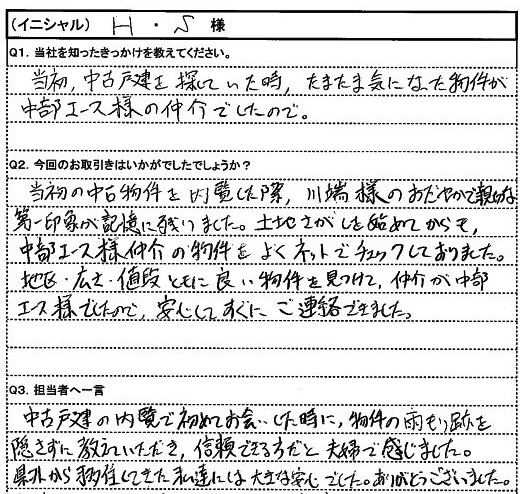 (イニシャル) H・S 様
Q1. 当社を知ったきっかけを教えてください。
当初,中古戸建を探していた時,たまたま気になった物件が
中部エース様の仲介でしたので。
Q2. 今回のお取引きはいかがでしたでしょうか?
当初の中古物件を内覧した際,川端様のおだやかで親切な
第一印象が記憶に残りました。土地さがしを始めてからも,
中部エース様仲介の物件をよくネットでチェックしておりました。
地区・広さ・値段ともに良い物件を見つけて,仲介が中部
エース様でしたので,安心してすぐにご連絡できました。
Q3. 担当者へ一言
中古戸建の内覧で初めてお会いした時に,物件の雨もり跡を
隠さずに教えていただき,信頼できる方だと夫婦で感じました。
県外から移住してきた私達には大きな安心でした。ありがとうございました。